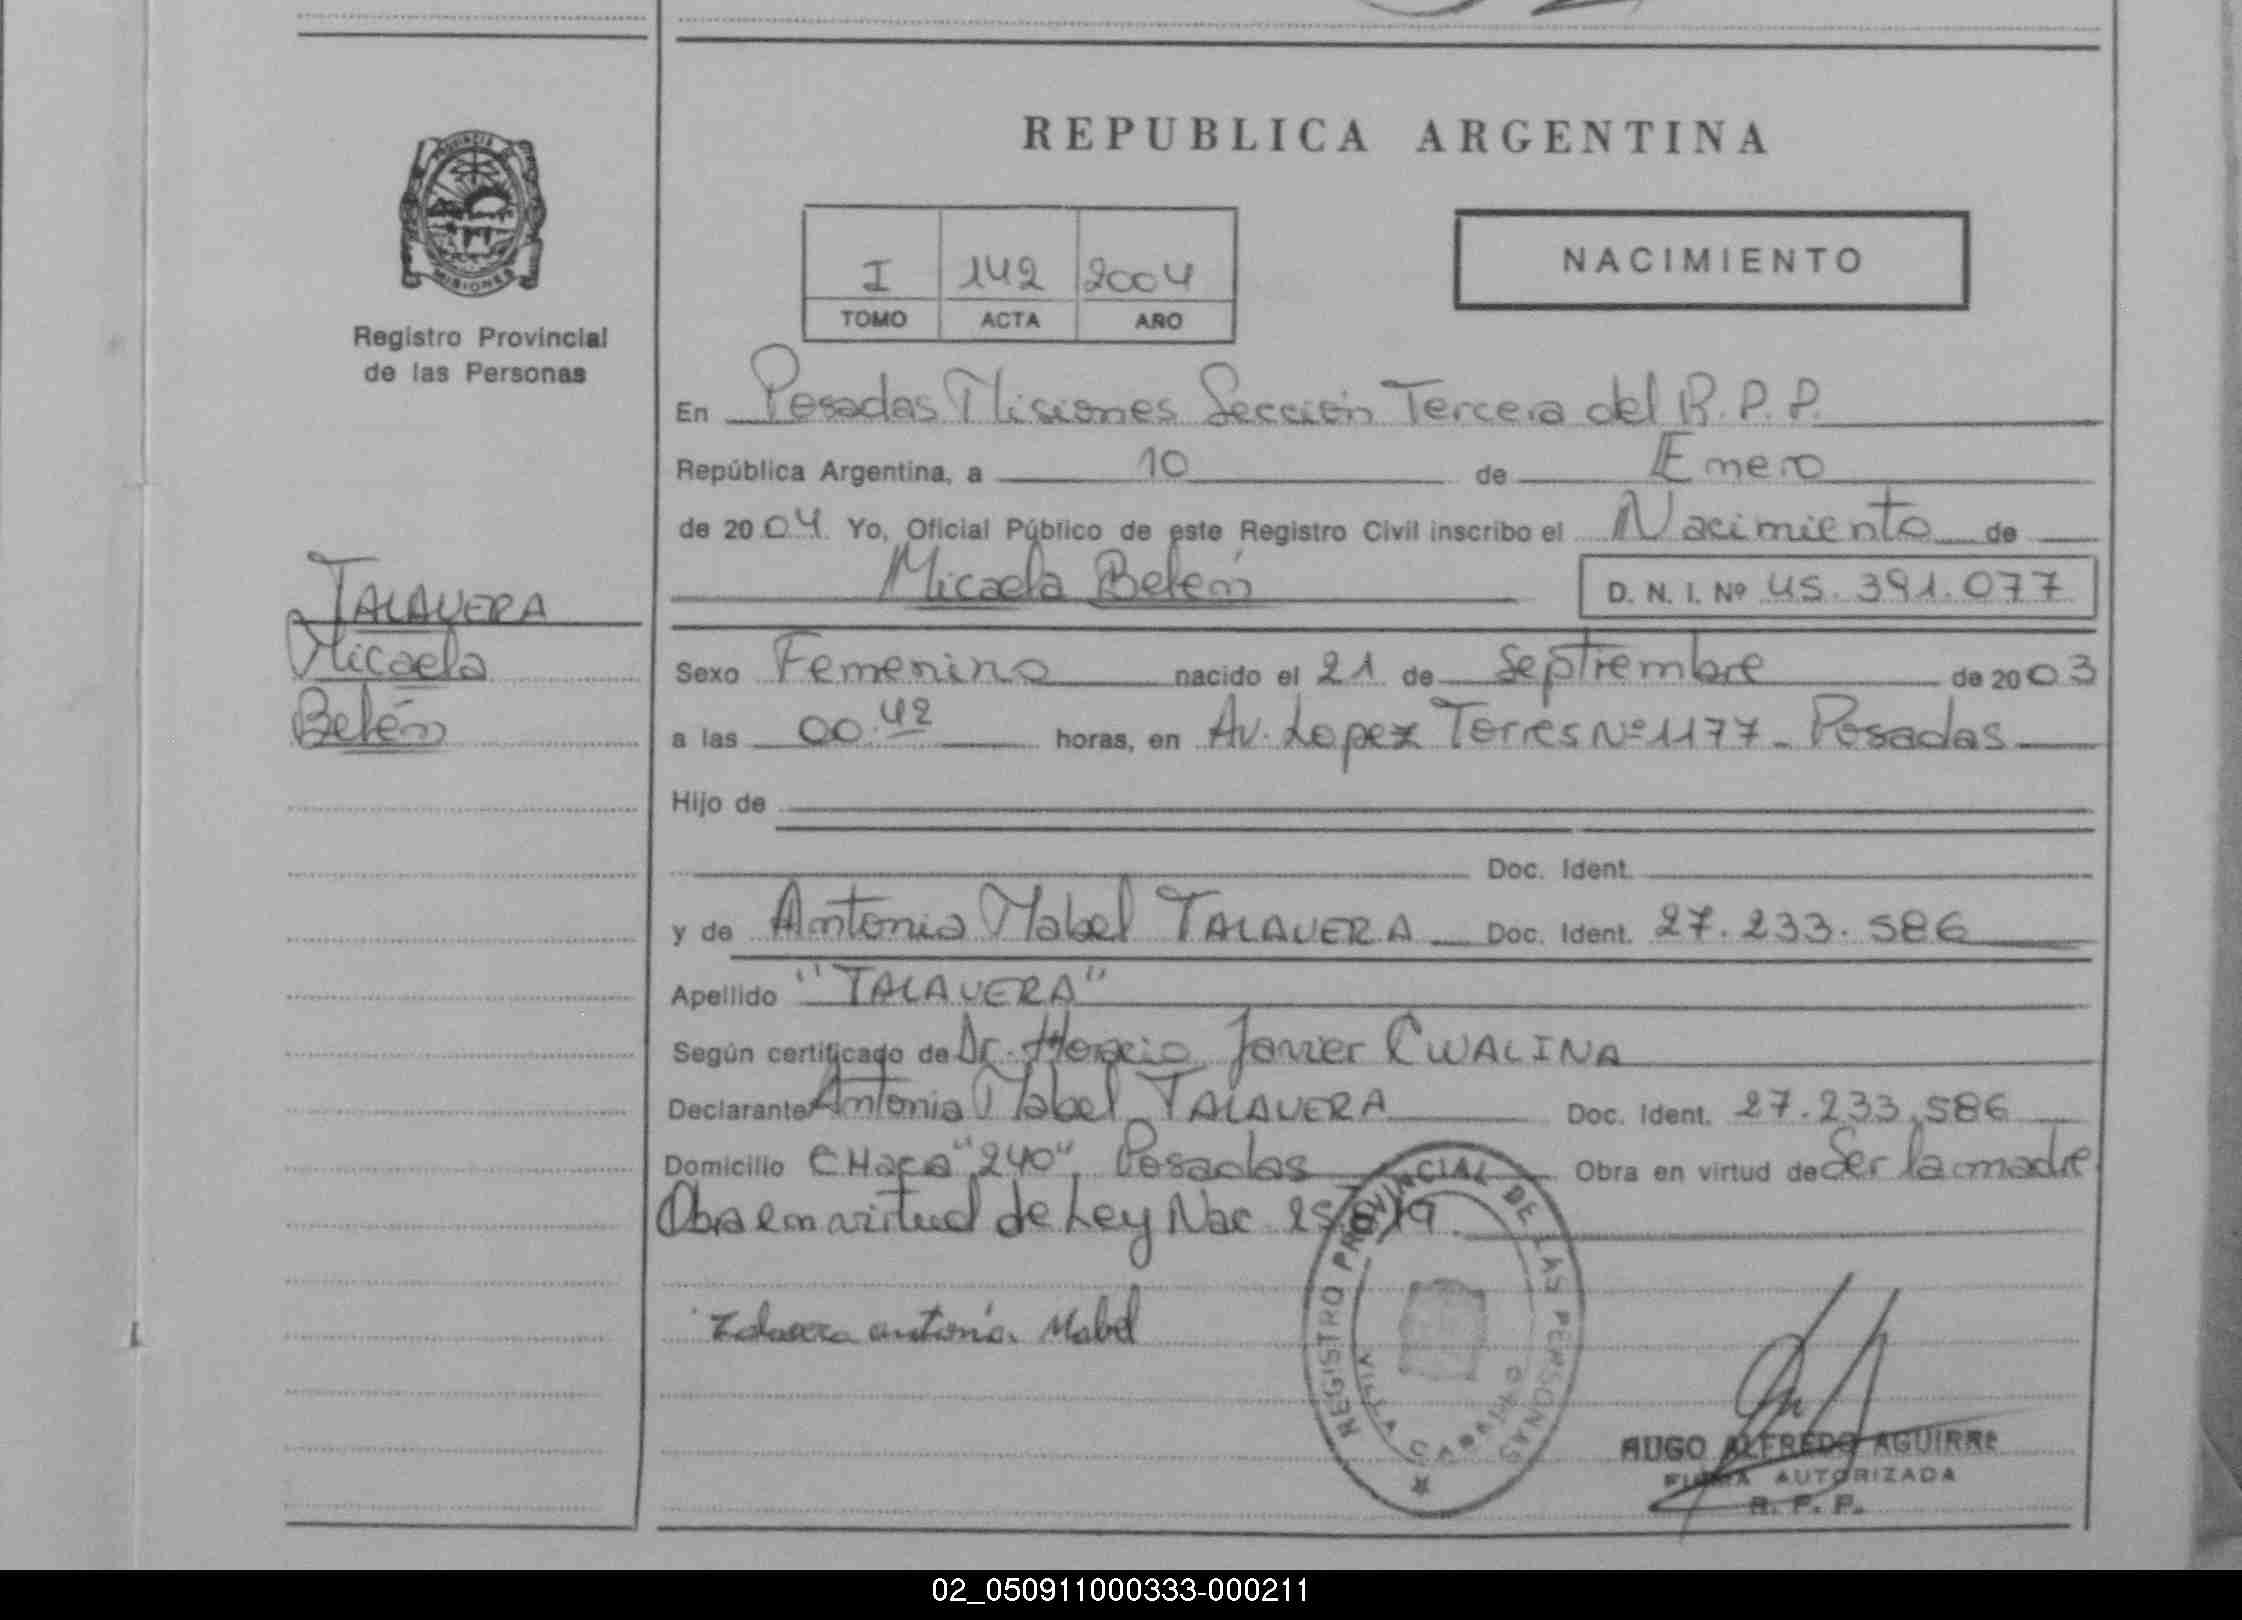 REPUBLICA ARGENTINA
PROVINCIA DE
MISIONES
Registro Provincial
de las Personas
I 142 2004
TOMO ACTA AÑO
NACIMIENTO
En Posadas Misiones Sección Tercera del R.P.P.
República Argentina, a 10 de Enero
de 2004 Yo, Oficial Público de este Registro Civil inscribo el Nacimiento de
Micaela Belén D. N. I. Nº 45.391.077
TALAVERA
Micaela
Belén
Sexo Femenino nacido el 21 de Septiembre de 2003
a las 00.42 horas, en Av. Lopez Torres Nº 1177 - Posadas
Hijo de
Doc. Ident.
y de Antonia Mabel TALAVERA Doc. Ident. 27.233.586
Apellido "TALAVERA"
Según certificado de Dr. Horacio Javier CWALINA
Declarante Antonia Mabel TALAVERA Doc. Ident. 27.233.586
Domicilio CHaca "240" Posadas Obra en virtud de Ser la madre
Obra en virtud de Ley Nac 25.819
Talavera antonia Mabel
REGISTRO PROVINCIAL DE LAS PERSONAS
VILLA CABELLO
HUGO ALFREDO AGUIRRE
FIRMA AUTORIZADA
R. P. P.
02_050911000333-000211